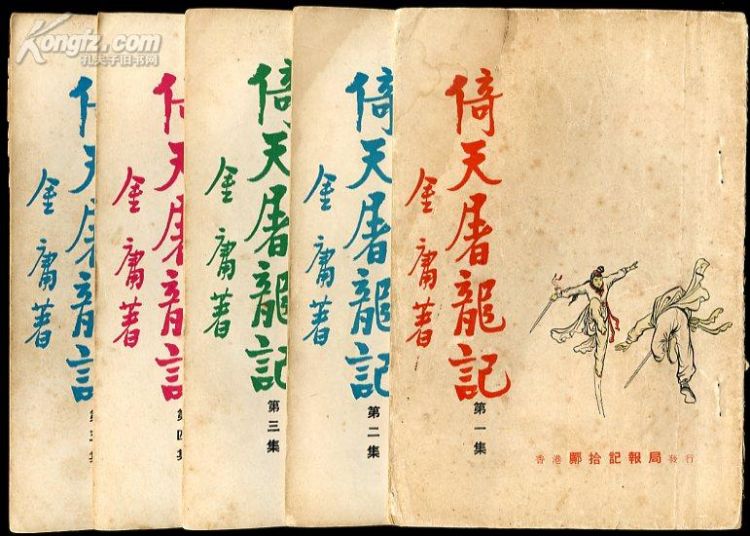 Kongfz.com
孔夫子旧书网
倚天屠龍記
金庸著
第一集
香港 鄺拾記報局 發行
倚天屠龍記
金庸著
第二集
倚天屠龍記
金庸著
第三集
倚天屠龍記
金庸著
第四集
倚天屠龍記
金庸著
第五集